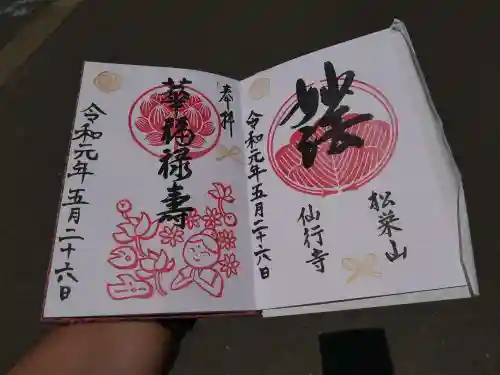 奉拝
妙法
松栄山
仙行寺
令和元年五月二十六日
奉拝
華福禄寿
令和元年五月二十六日